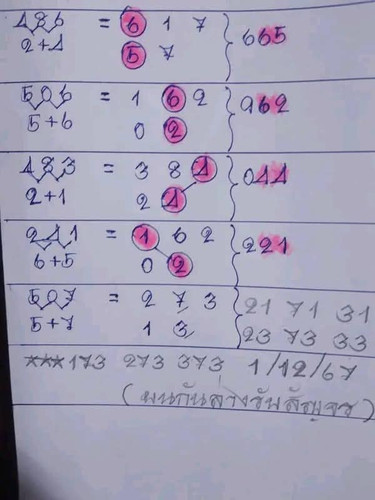 486 = 6 1 7 } 665
2+4 5 7
506 = 1 6 2 } 962
5+6 0 2
483 = 3 8 4 } 044
2+1 2 4
241 = 1 6 2 } 221
6+5 0 2
507 = 2 7 3 } 21 71 31
5+7 1 3 23 73 33
***173 273 373 1/12/67
(บนกันล่างรับสัญจร)